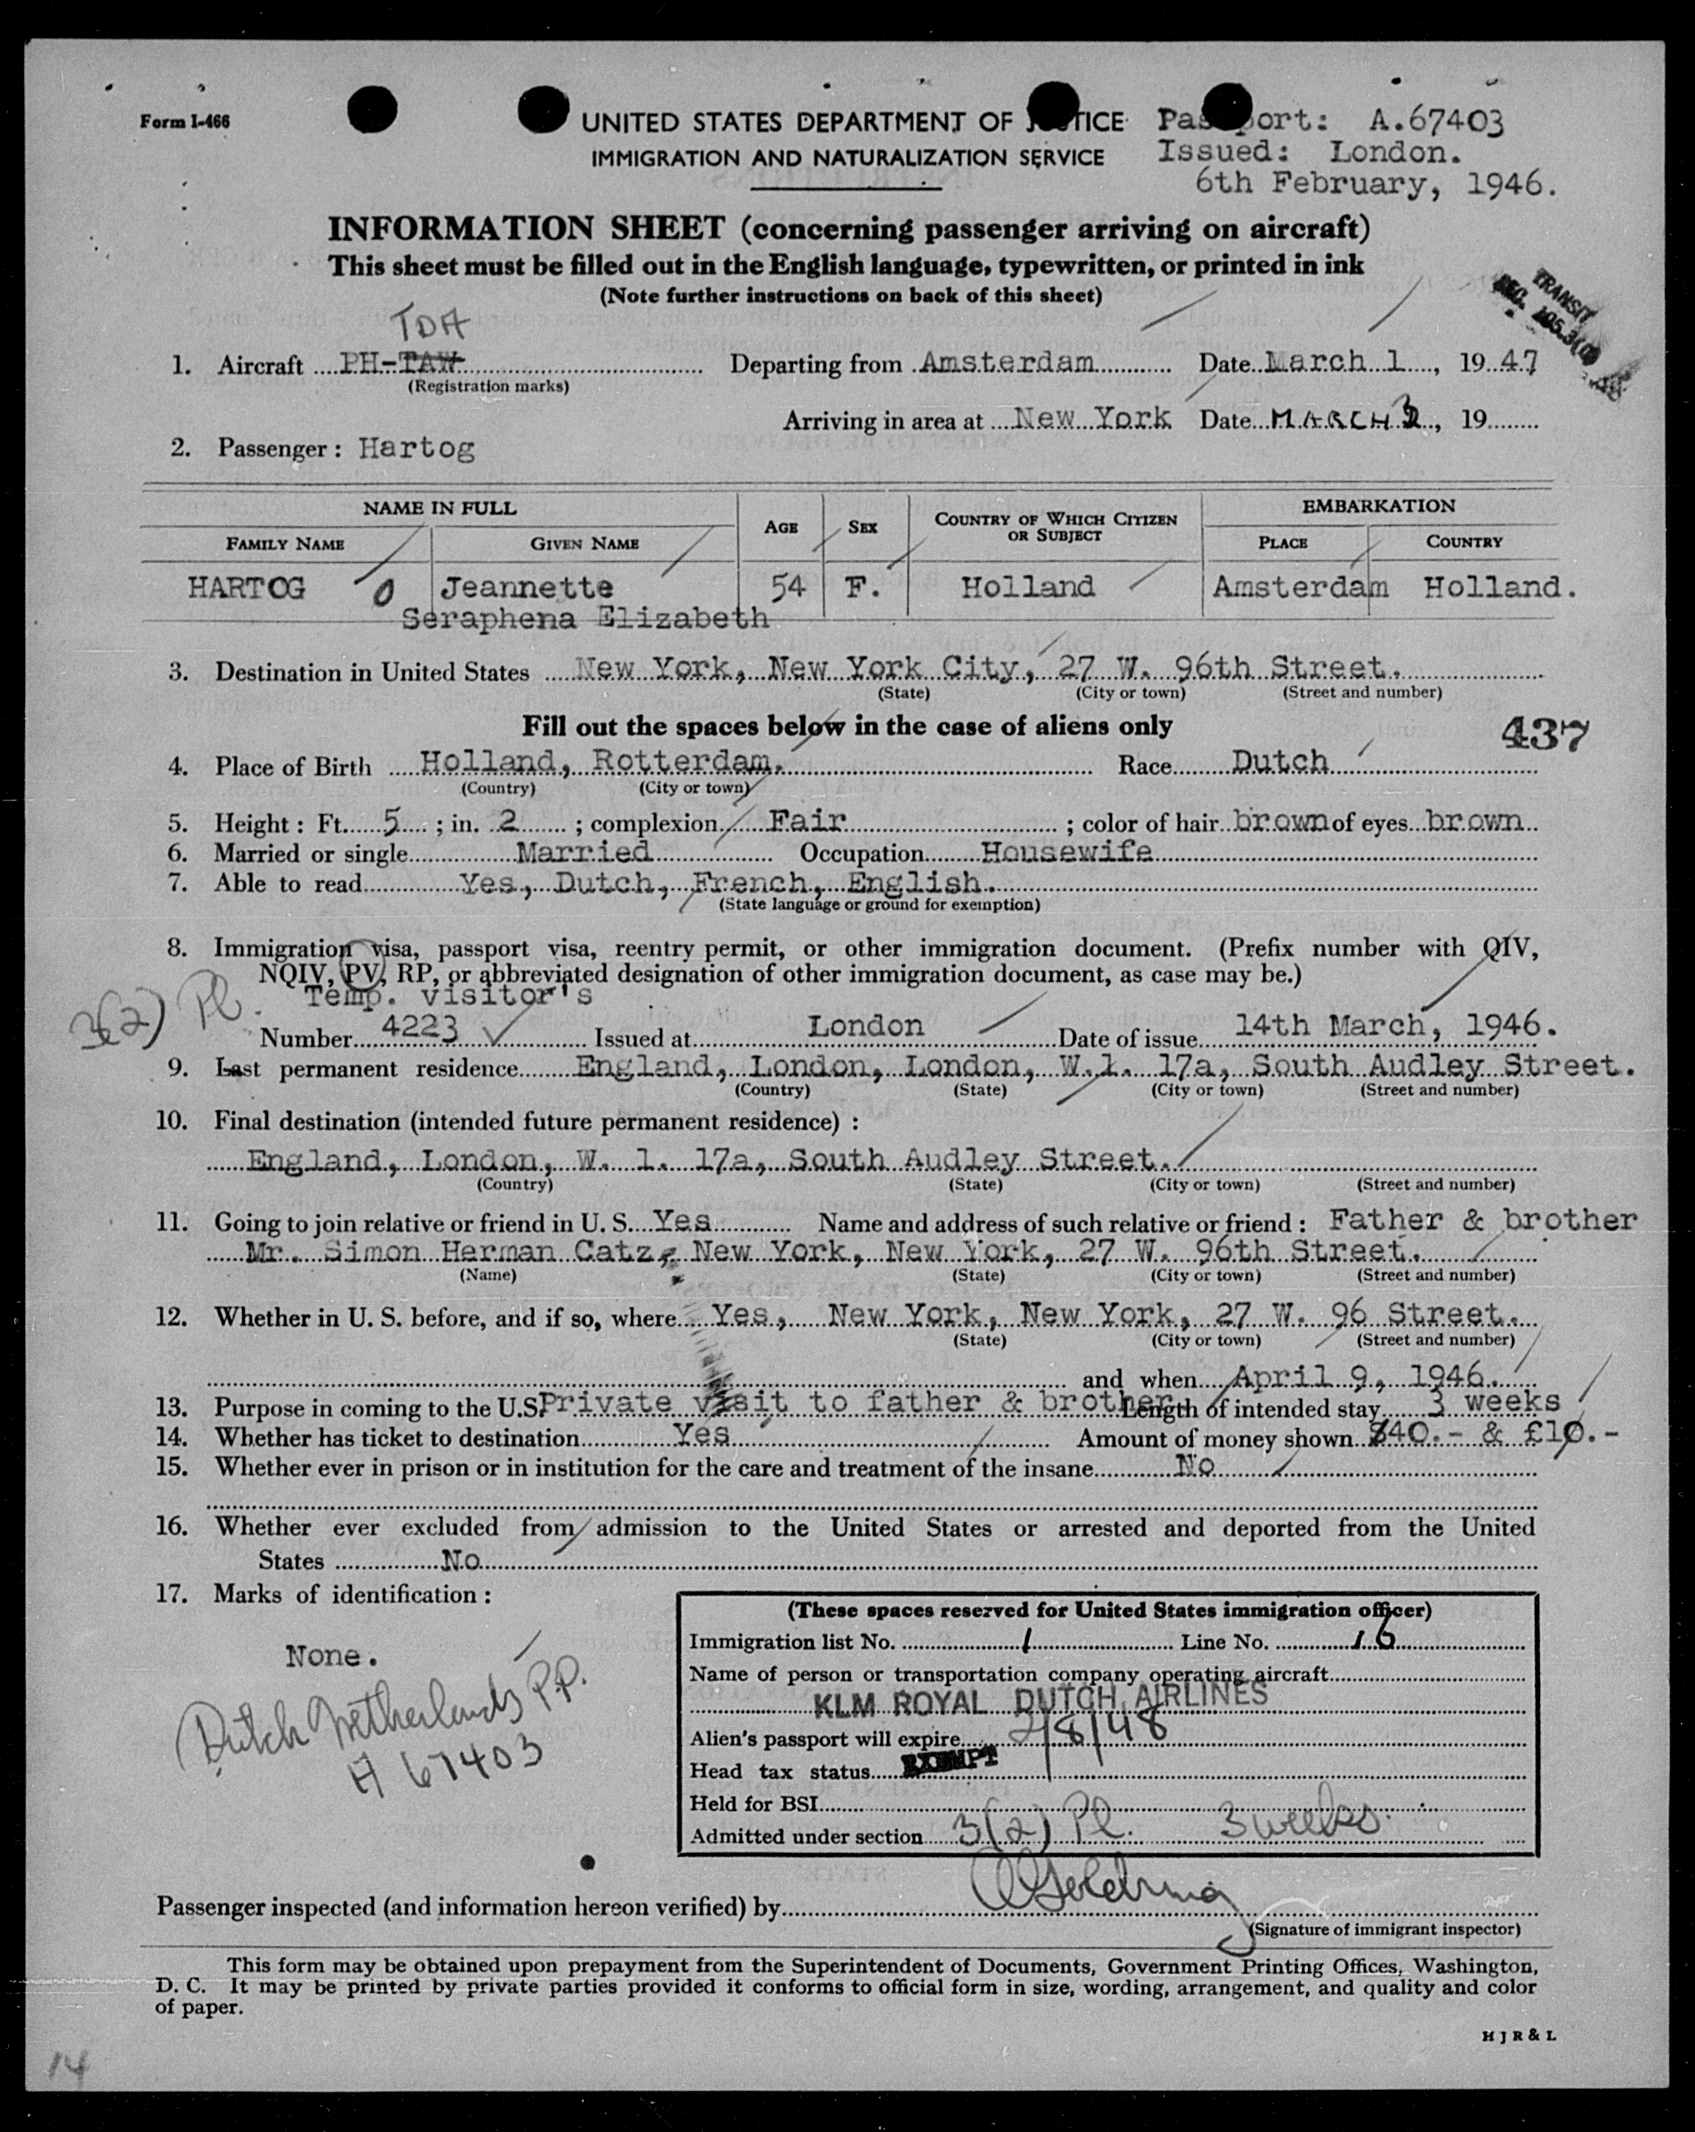 Form I-466
UNITED STATES DEPARTMENT OF J TICE
IMMIGRATION AND NATURALIZATION SERVICE
Pas ort: A.67403
Issued: London.
6th February, 1946.
INFORMATION SHEET (concerning passenger arriving on aircraft)
This sheet must be filled out in the English language, typewritten, or printed in ink
(Note further instructions on back of this sheet)
TRANSIT
SEC. 105.3(
TDA
1. Aircraft PH-TAW Departing from Amsterdam Date March 1, 1947
(Registration marks)
Arriving in area at New York Date MARCH 3, 19
2. Passenger: Hartog
NAME IN FULL AGE SEX COUNTRY OF WHICH CITIZEN OR SUBJECT EMBARKATION
FAMILY NAME GIVEN NAME PLACE COUNTRY
HARTOG 0 Jeannette 54 F. Holland Amsterdam Holland.
Seraphena Elizabeth
3. Destination in United States New York, New York City, 27 W. 96th Street.
(State) (City or town) (Street and number)
Fill out the spaces below in the case of aliens only
437
4. Place of Birth Holland, Rotterdam. Race Dutch
(Country) (City or town)
5. Height: Ft. 5; in. 2; complexion Fair; color of hair brown of eyes brown
6. Married or single Married Occupation Housewife
7. Able to read Yes, Dutch, French, English.
(State language or ground for exemption)
8. Immigration visa, passport visa, reentry permit, or other immigration document. (Prefix number with QIV,
NQIV, PV, RP, or abbreviated designation of other immigration document, as case may be.)
3(2) Pl. Temp. visitor's
Number 4223 Issued at London Date of issue 14th March, 1946.
9. Last permanent residence England, London, London, W.1. 17a, South Audley Street.
(Country) (State) (City or town) (Street and number)
10. Final destination (intended future permanent residence):
England, London, W. 1. 17a, South Audley Street.
(Country) (State) (City or town) (Street and number)
11. Going to join relative or friend in U. S. Yes Name and address of such relative or friend: Father & brother
Mr. Simon Herman Catz, New York, New York, 27 W. 96th Street.
(Name) (State) (City or town) (Street and number)
12. Whether in U. S. before, and if so, where Yes, New York, New York, 27 W. 96 Street.
(State) (City or town) (Street and number)
and when April 9, 1946.
13. Purpose in coming to the U.S. Private visit to father & brother Length of intended stay 3 weeks
14. Whether has ticket to destination Yes Amount of money shown $40.- & £10.-
15. Whether ever in prison or in institution for the care and treatment of the insane No
16. Whether ever excluded from admission to the United States or arrested and deported from the United
States No
17. Marks of identification:
None.
Dutch Netherlands P.P.
A 67403
(These spaces reserved for United States immigration officer)
Immigration list No. 1 Line No. 16
Name of person or transportation company operating aircraft
KLM ROYAL DUTCH AIRLINES
Alien's passport will expire 2/8/48
Head tax status EXEMPT
Held for BSI
Admitted under section 3(2) Pl. 3 weeks.
Passenger inspected (and information hereon verified) by
(Signature of immigrant inspector)
This form may be obtained upon prepayment from the Superintendent of Documents, Government Printing Offices, Washington,
D. C. It may be printed by private parties provided it conforms to official form in size, wording, arrangement, and quality and color
of paper.
H J R & L
14